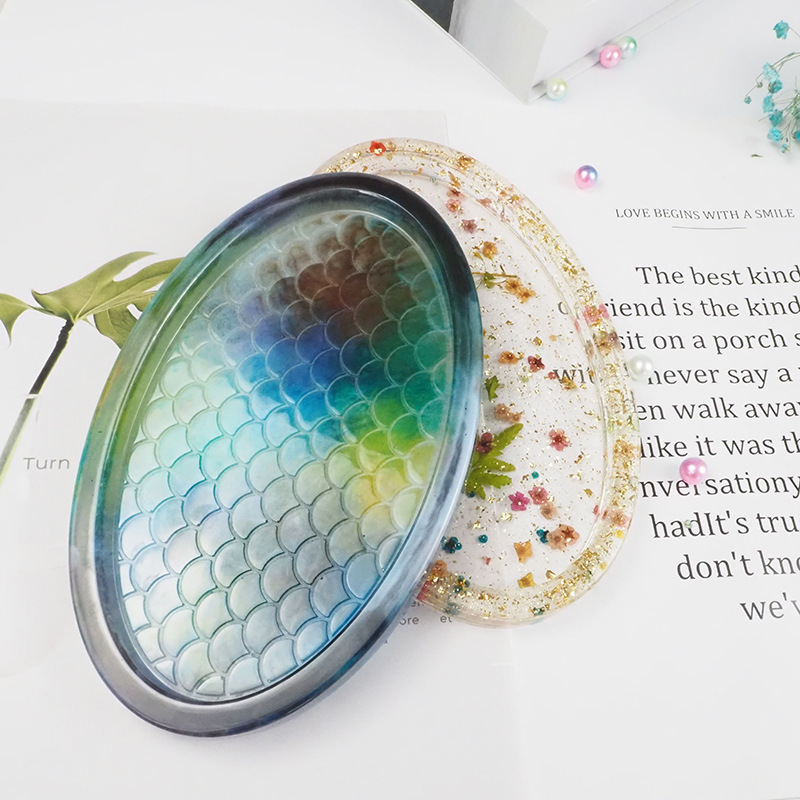 LOVE BEGINS WITH A SMILE
The best kind
friend is the kind
sit on a porch s
never say a
en walk away
like it was th
nversationy
hadIt's tru
don't kno
we'v
Turn
ore et